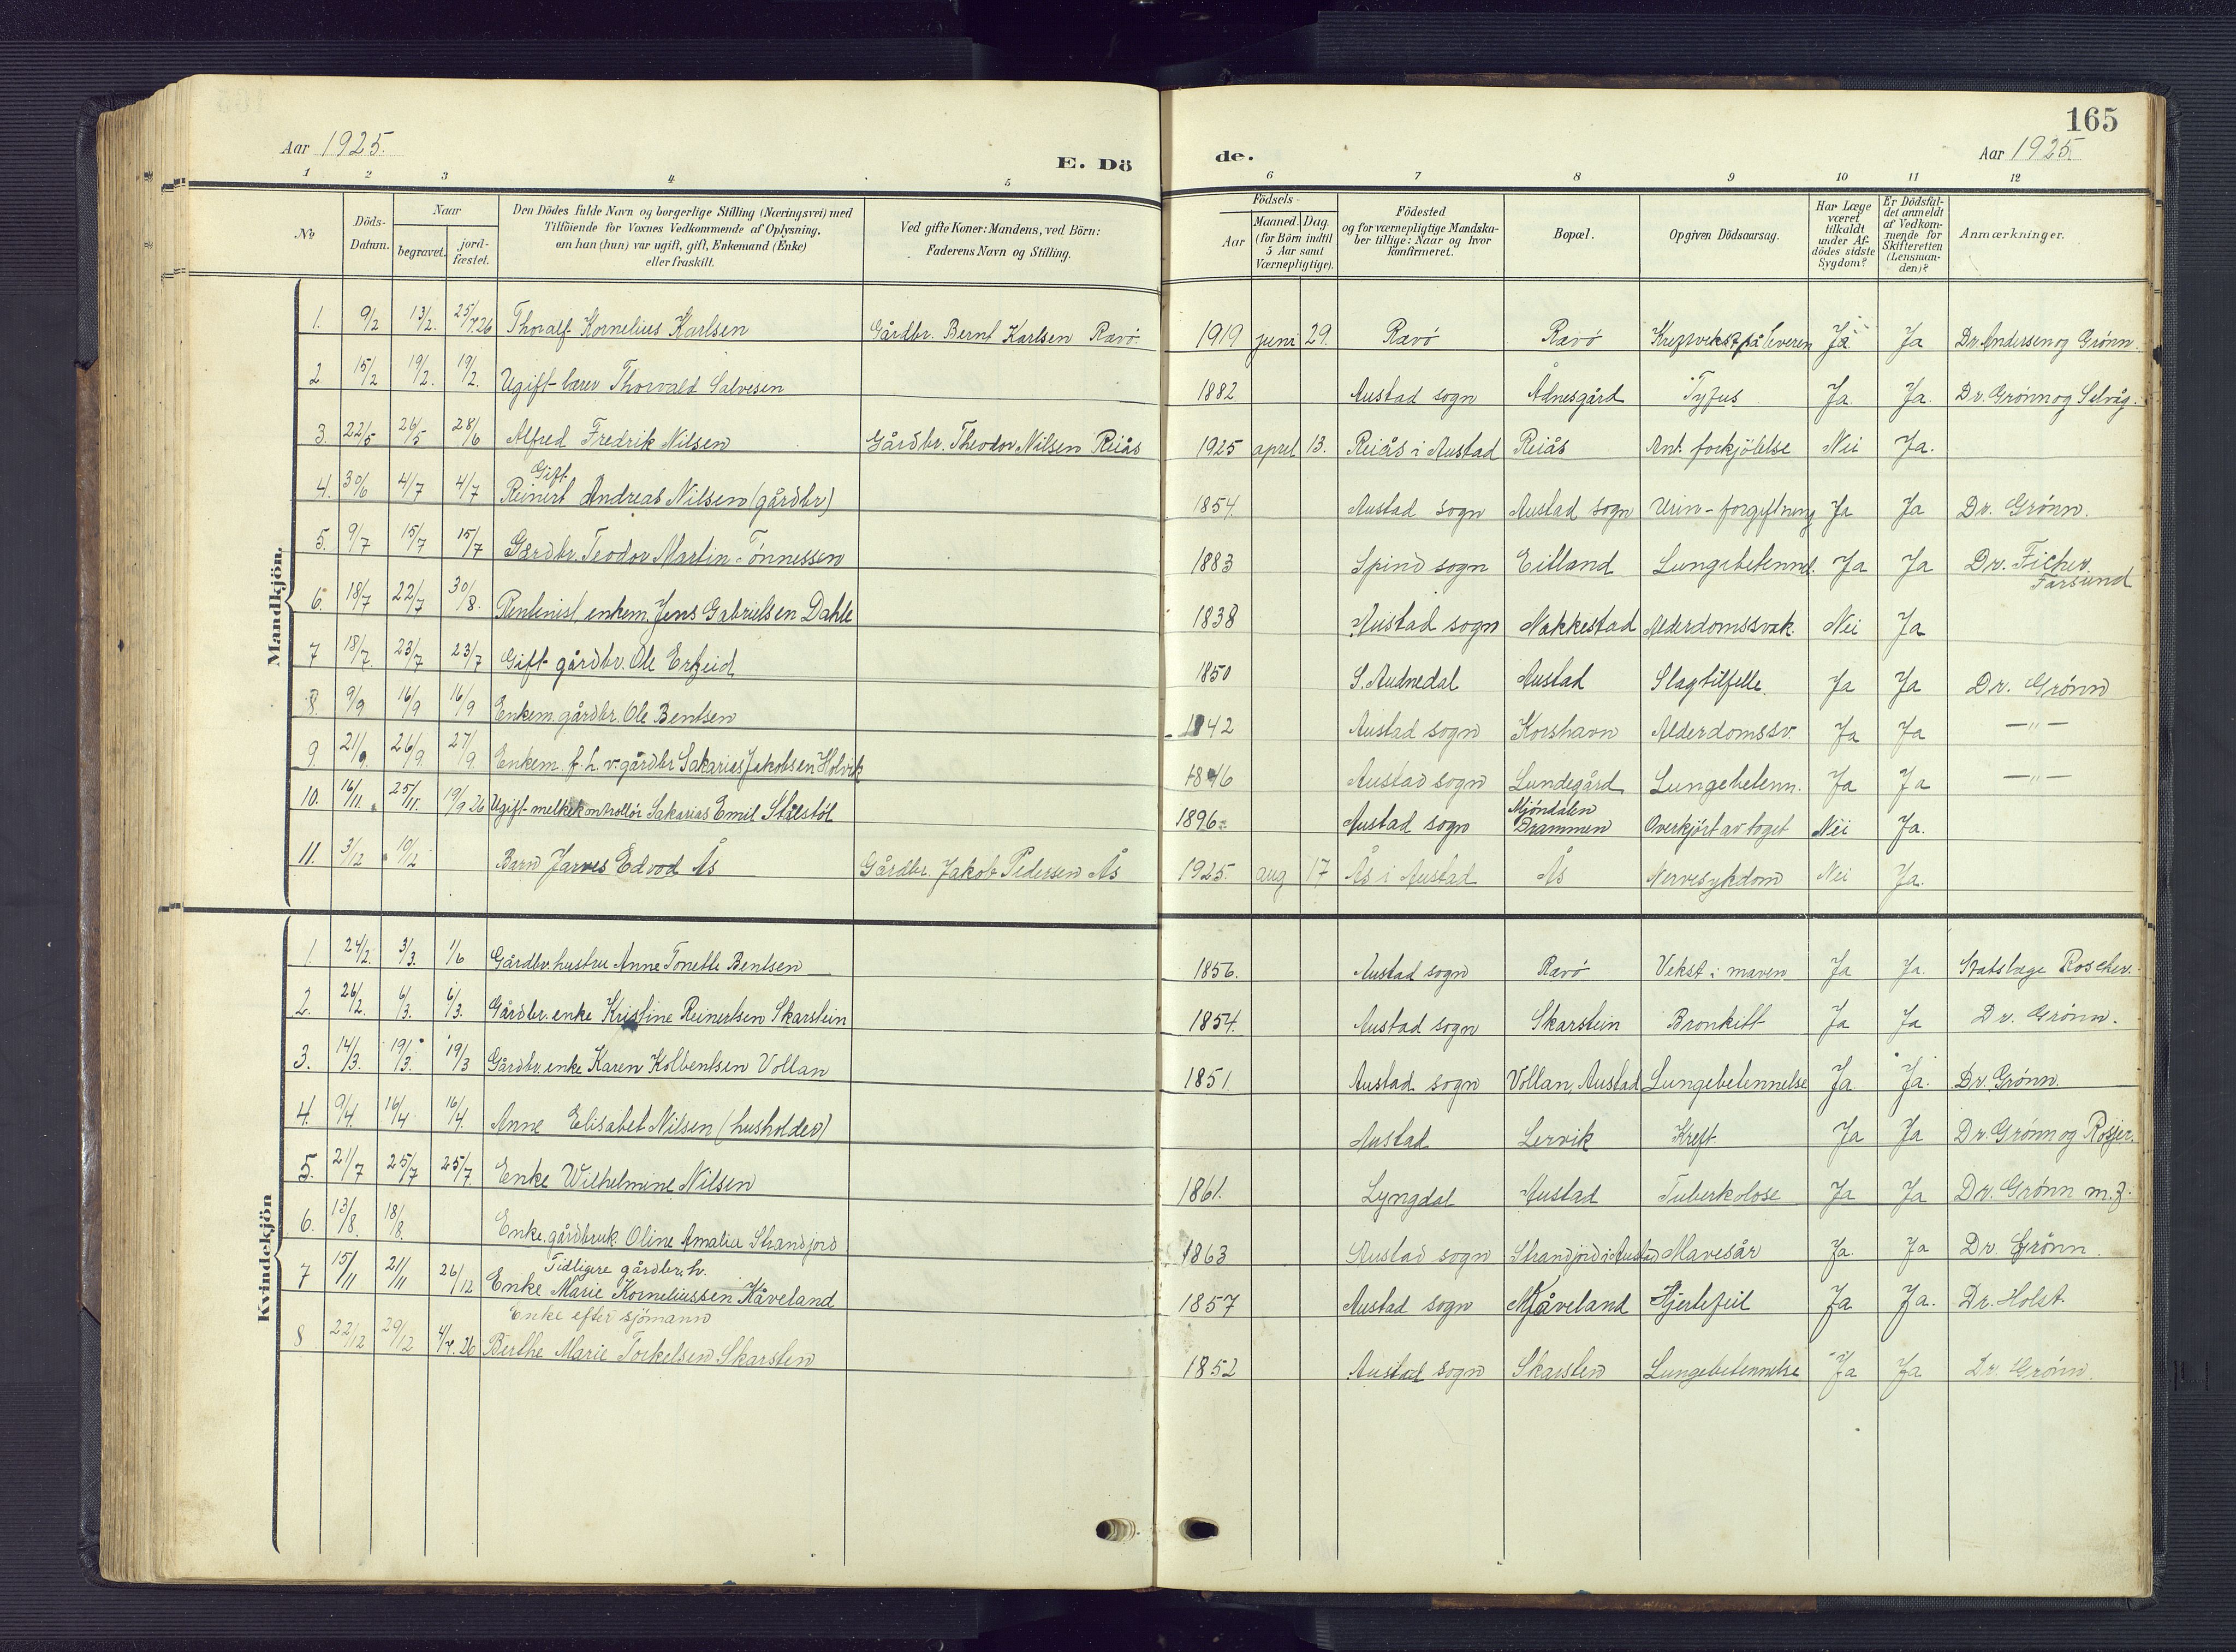 165
Aar 1925.
E. Dö
de.
Aar 1925.
1 2 3 4 5 6 7 8 9 10 11 12
No
Döds-Datum.
Naar
begravet.
jord-fæstet.
Den Dödes fulde Navn og borgerlige Stilling (Næringsvei) med
Tilföiende for Voxnes Vedkommende af Oplysning,
om han (hun) var ugift, gift, Enkemand (Enke)
eller fraskilt.
Ved gifte Koner: Mandens, ved Börn:
Faderens Navn og Stilling.
Födsels-
Aar
Maaned. Dag.
(for Börn indtil
5 Aar samt
Værnepligtige).
Födested
og for værnepligtige Mandska-
ber tillige: Naar og hvor
konfirmeret.
Bopæl.
Opgiven Dödsaarsag.
Har Læge
været
tilkaldt
under Af-
dödes sidste
Sygdom?
Er Dödsfal-
det anmeldt
af Vedkom-
mende for
Skifteretten
(Lensman-
den)?
Anmærkninger.
Mandkjön.
1. 9/2 13/2. 25/7.26 Thoralf Kornelius Karlsen Gårdbr. Bernt Karlsen Ravö. 1919 juni 29. Ravö Ravö på leveren Ja Ja Dr. Andersen og Grönn.
2 15/2 19/2. 19/2. Ugift Thorvald Salvesen 1882 Austad sogn Ådnesgård Tyfus Ja. Ja. Dr. Grönn og Selvåg.
3. 22/5 26/5 28/6 Alfred Fredrik Nilsen Gårdbr. Theodor Nilsen Reiås 1925 april 13. Reiås i Austad Reiås Ant. forkjölelse Nei Ja.
Gift
4. 30/6 4/7 4/7 Reinert Andreas Nilsen (gårdbr) 1854. Austad sogn Austad sogn Urin-forgiftning Ja Ja Dr. Grönn.
5. 9/7 15/7 15/7 Gårdbr. Teodor Martin Tönnessen 1883 Spind sogn Eitland Lungebetennel. Ja Ja Dr. Ficher
Farsund
6. 18/7 22/7 30/8. Rentenist, enkem. Jens Gabrielsen Dahle 1838 Austad sogn Nakkestad Alderdomssvak. Nei Ja
7 18/7. 23/7 23/7 Gift gårdbr. Ole Erfjeid 1850 S. Audnedal Austad Slagtilfelle. Ja Ja Dr. Grönn
8. 9/9 16/9 16/9 Enkem. gårdbr. Ole Bentsen 1842 Austad sogn Korshavn Alderdomssv. Ja Ja —"—
9. 21/9. 26/9. 27/9. Enkem. f.h.v. gårdbr Sakarias Jakobsen Holvik 1846 Austad sogn Lundegård Lungebetenn. Ja Ja —"—
10. 16/11. 25/11. 19/9 26 Ugift melkekontrollör Sakarias Emil Stålstöl 1896. Austad sogn Mjöndalen
Drammen Overkjört av toget Nei Ja.
11. 3/12 10/12 Barn Edvod Ås Gårdbr. Jakob Pedersen Ås 1925. aug 17 Ås i Austad Ås Nervesykdom Nei Ja.
Kvindekjön
1. 24/2. 3/3. 1/6 Gårdbr. hustru Anne Tonette Bentsen 1856. Austad sogn Ravö Vekst i maven Ja Ja. Statslæge Roscher.
2. 26/2. 6/3. 6/3. Gårdbr. enke Kristine Reinertsen Skarstein 1854. Austad sogn Skarstein Bronkitt Ja Ja Dr. Grönn.
3. 14/3. 19/3. 19/3 Gårdbr. enke Karen Kolbentsen Vollan 1851. Austad sogn Vollan, Austad Lungebetennelse Ja Ja. Dr. Grönn.
4. 9/4. 16/4 16/4. Anne Elisabet Nilsen (husholder) Austad Lervik Kreft Ja Ja Dr. Grönn og
5. 21/7 25/7 25/7. Enke Wilhelmine Nilsen 1861. Lyngdal Austad Tuberkolose Ja Ja Dr. Grönn m.fl.
6. 13/8. 18/8. Enke, gårdbruk. Oline Amalia Strandjord 1863 Austad sogn Strandjord i Austad Mavesår Ja. Ja Dr. Grönn.
Tidligere gårdbr. h.
7 15/11 21/11 26/12 Enke Marie Korneliussen Kåveland 1857 Austad sogn Kåveland Hjertefeil Ja Ja. Dr. Holst.
Enke efter sjömann
8 22/12 29/12 4/7.26 Berthe Marie Torkelsen Skarsten 1852 Austad sogn Skarsten Lungebetennelse Ja Ja Dr. Grönn.